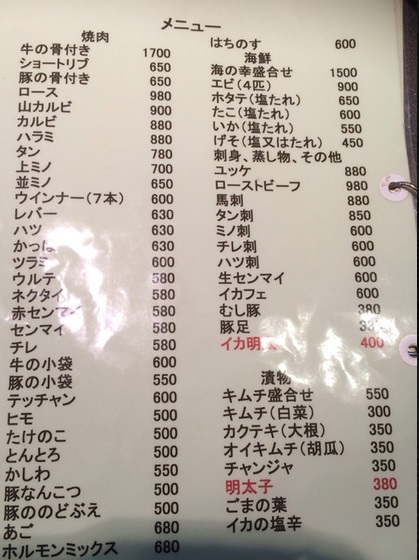 メニュー
焼肉
牛の骨付き 1700
ショートリブ 650
豚の骨付き 650
ロース 980
山カルビ 900
カルビ 880
ハラミ 880
タン 780
上ミノ 700
並ミノ 650
ウインナー(7本) 600
レバー 630
ハツ 630
かっぱ 630
ツラミ 600
ウルテ 580
ネクタイ 580
赤センマイ 580
センマイ 580
チレ 580
牛の小袋 600
豚の小袋 550
テッチャン 600
ヒモ 500
たけのこ 500
とんとろ 500
かしわ 550
豚なんこつ 500
豚ののどぶえ 500
あご 680
ホルモンミックス 680
はちのす 600
海鮮
海の幸盛合せ 1500
エビ(4匹) 900
ホタテ(塩たれ) 650
たこ(塩たれ) 600
いか(塩たれ) 550
げそ(塩又はたれ) 450
刺身、蒸し物、その他
ユッケ 880
ローストビーフ 980
馬刺 880
タン刺 850
ミノ刺 600
チレ刺 600
ハツ刺 600
生センマイ 600
イカフェ 600
むし豚 380
豚足
イカ明太 400
漬物
キムチ盛合せ 550
キムチ(白菜) 300
カクテキ(大根) 350
オイキムチ(胡瓜) 350
チャンジャ 350
明太子 380
ごまの葉 350
イカの塩辛 350